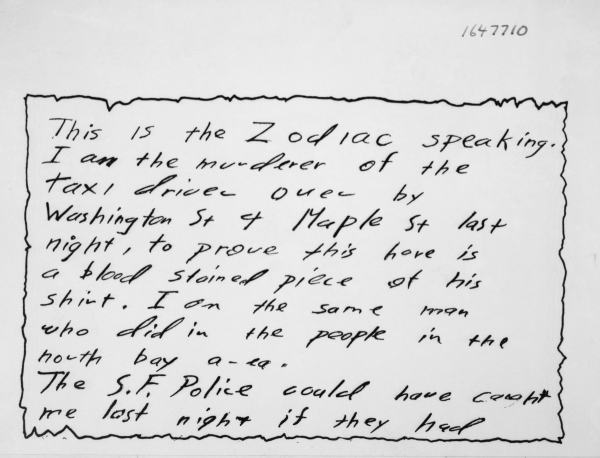 1647710
This is the Zodiac speaking.
I am the murderer of the
taxi driver over by
Washington St & Maple St last
night, to prove this here is
a blood stained piece of his
shirt. I am the same man
who did in the people in the
north bay area.
The S.F. Police could have caught
me last night if they had